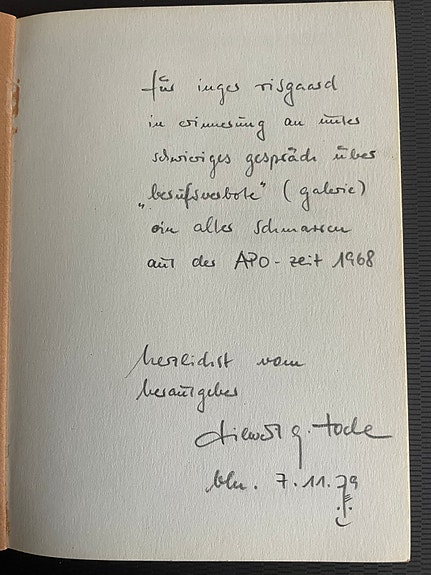 für inger risgaard
in erinnerung an unser
schwieriges gespräch über
„berufsverbote" (galerie)
ein alter schmarren
aus der APO-zeit 1968
herzlichst vom
herausgeber
g. tode
bln. 7.11.79